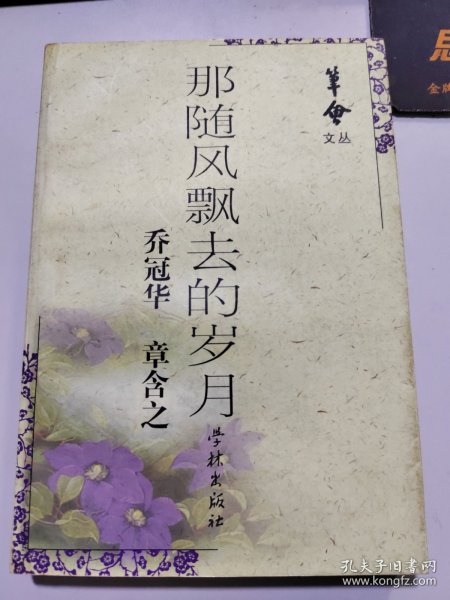 笔会
文丛
那随风飘去的岁月
乔冠华 章含之
学林出版社
金牌
孔夫子旧书网
www.kongfz.com